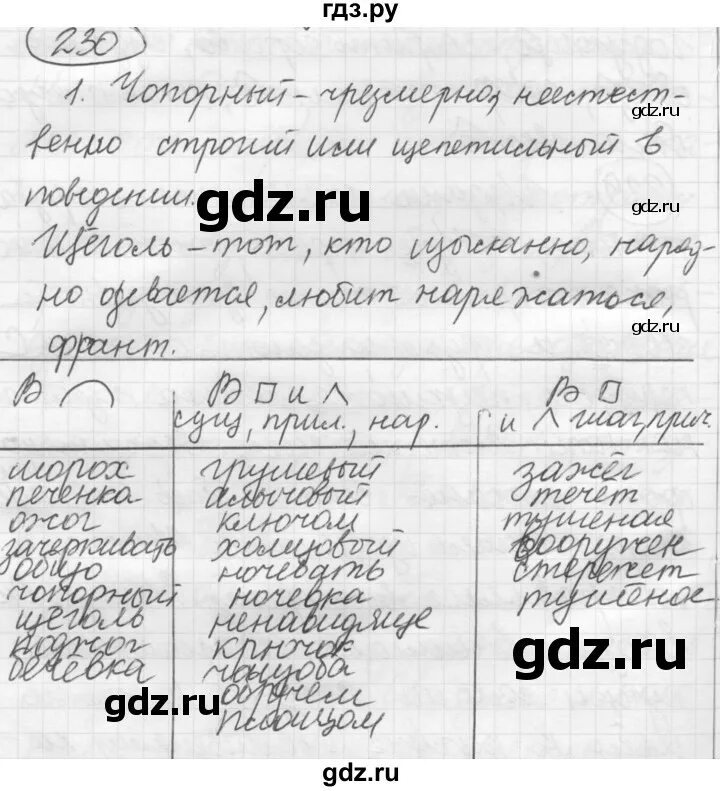 гдз.ру
230
1. Чопорный – чрезмерно, неестест-
венно строгий или щепетильный в
поведении.
Щёголь – тот, кто изысканно, наряд-
но одевается, любит наряжаться,
франт.
В
В и
В
сущ, прил., нар.
и глаг, прич.
шорох грушевый зажёг
печенка алычовый течёт
ожог ключом тушеная
зачеркивать холщовый вооружен
общо ночевать стережет
чопорный ночевка тушёное
щёголь ненавидяще
поджог ключок
бечёвка чащоба
обручем
плащом
gdz.ru
gdz.ru
gdz.ru
gdz.ru
gdz.ru
gdz.ru
gdz.ru
gdz.ru
gdz.ru